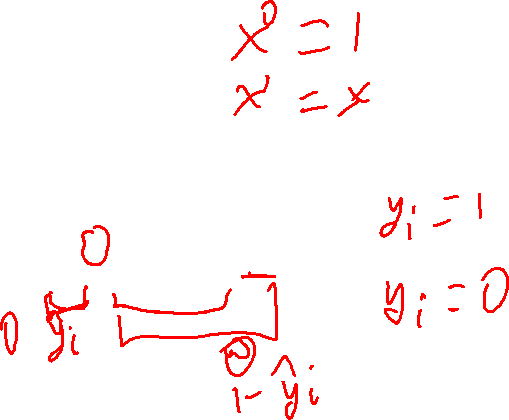 x⁰ = 1
x¹ = x
yᵢ = 1
0
yᵢ = 0
0 yᵢ
1 - ŷᵢ